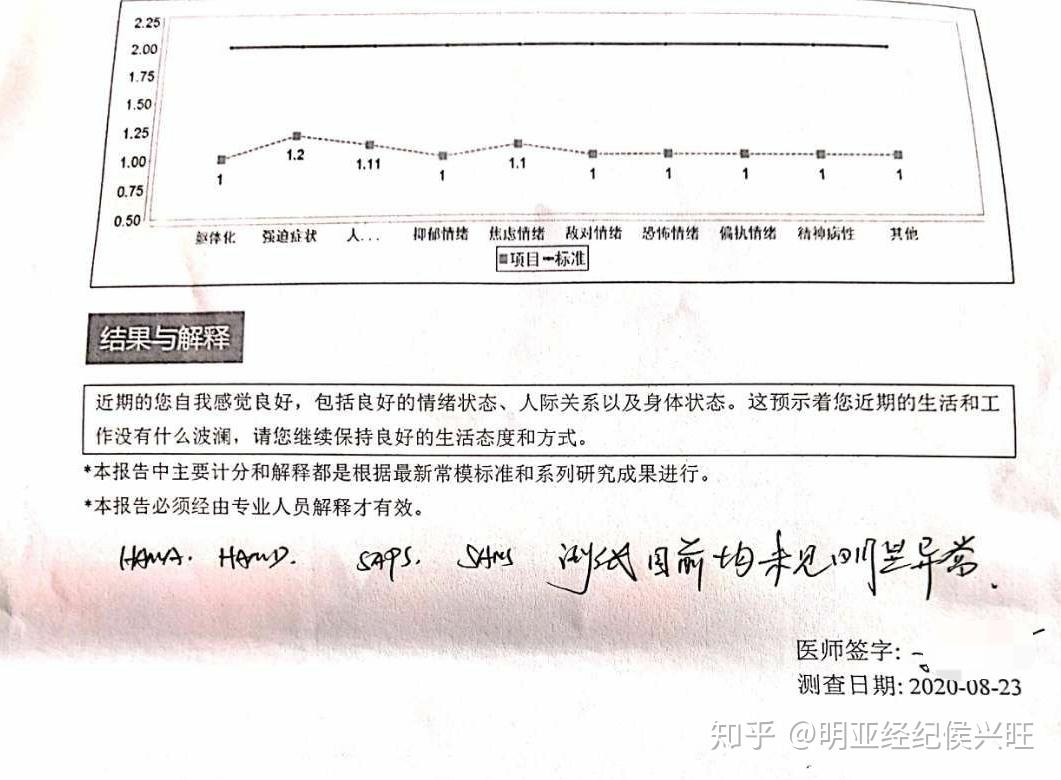 2.25
2.00
1.75
1.50
1.25
1.00
0.75
0.50
1 1.2 1.11 1 1.1 1 1 1 1 1
躯体化 强迫症状 人... 抑郁情绪 焦虑情绪 敌对情绪 恐怖情绪 偏执情绪 精神病性 其他
项目 标准
结果与解释
近期的您自我感觉良好，包括良好的情绪状态、人际关系以及身体状态。这预示着您近期的生活和工
作没有什么波澜，请您继续保持良好的生活态度和方式。
*本报告中主要计分和解释都是根据最新常模标准和系列研究成果进行。
*本报告必须经由专业人员解释才有效。
HAMA. HAMD. SAPS. SANS 测试目前均未见明显异常.
医师签字:
测查日期: 2020-08-23
知乎 @明亚经纪侯兴旺